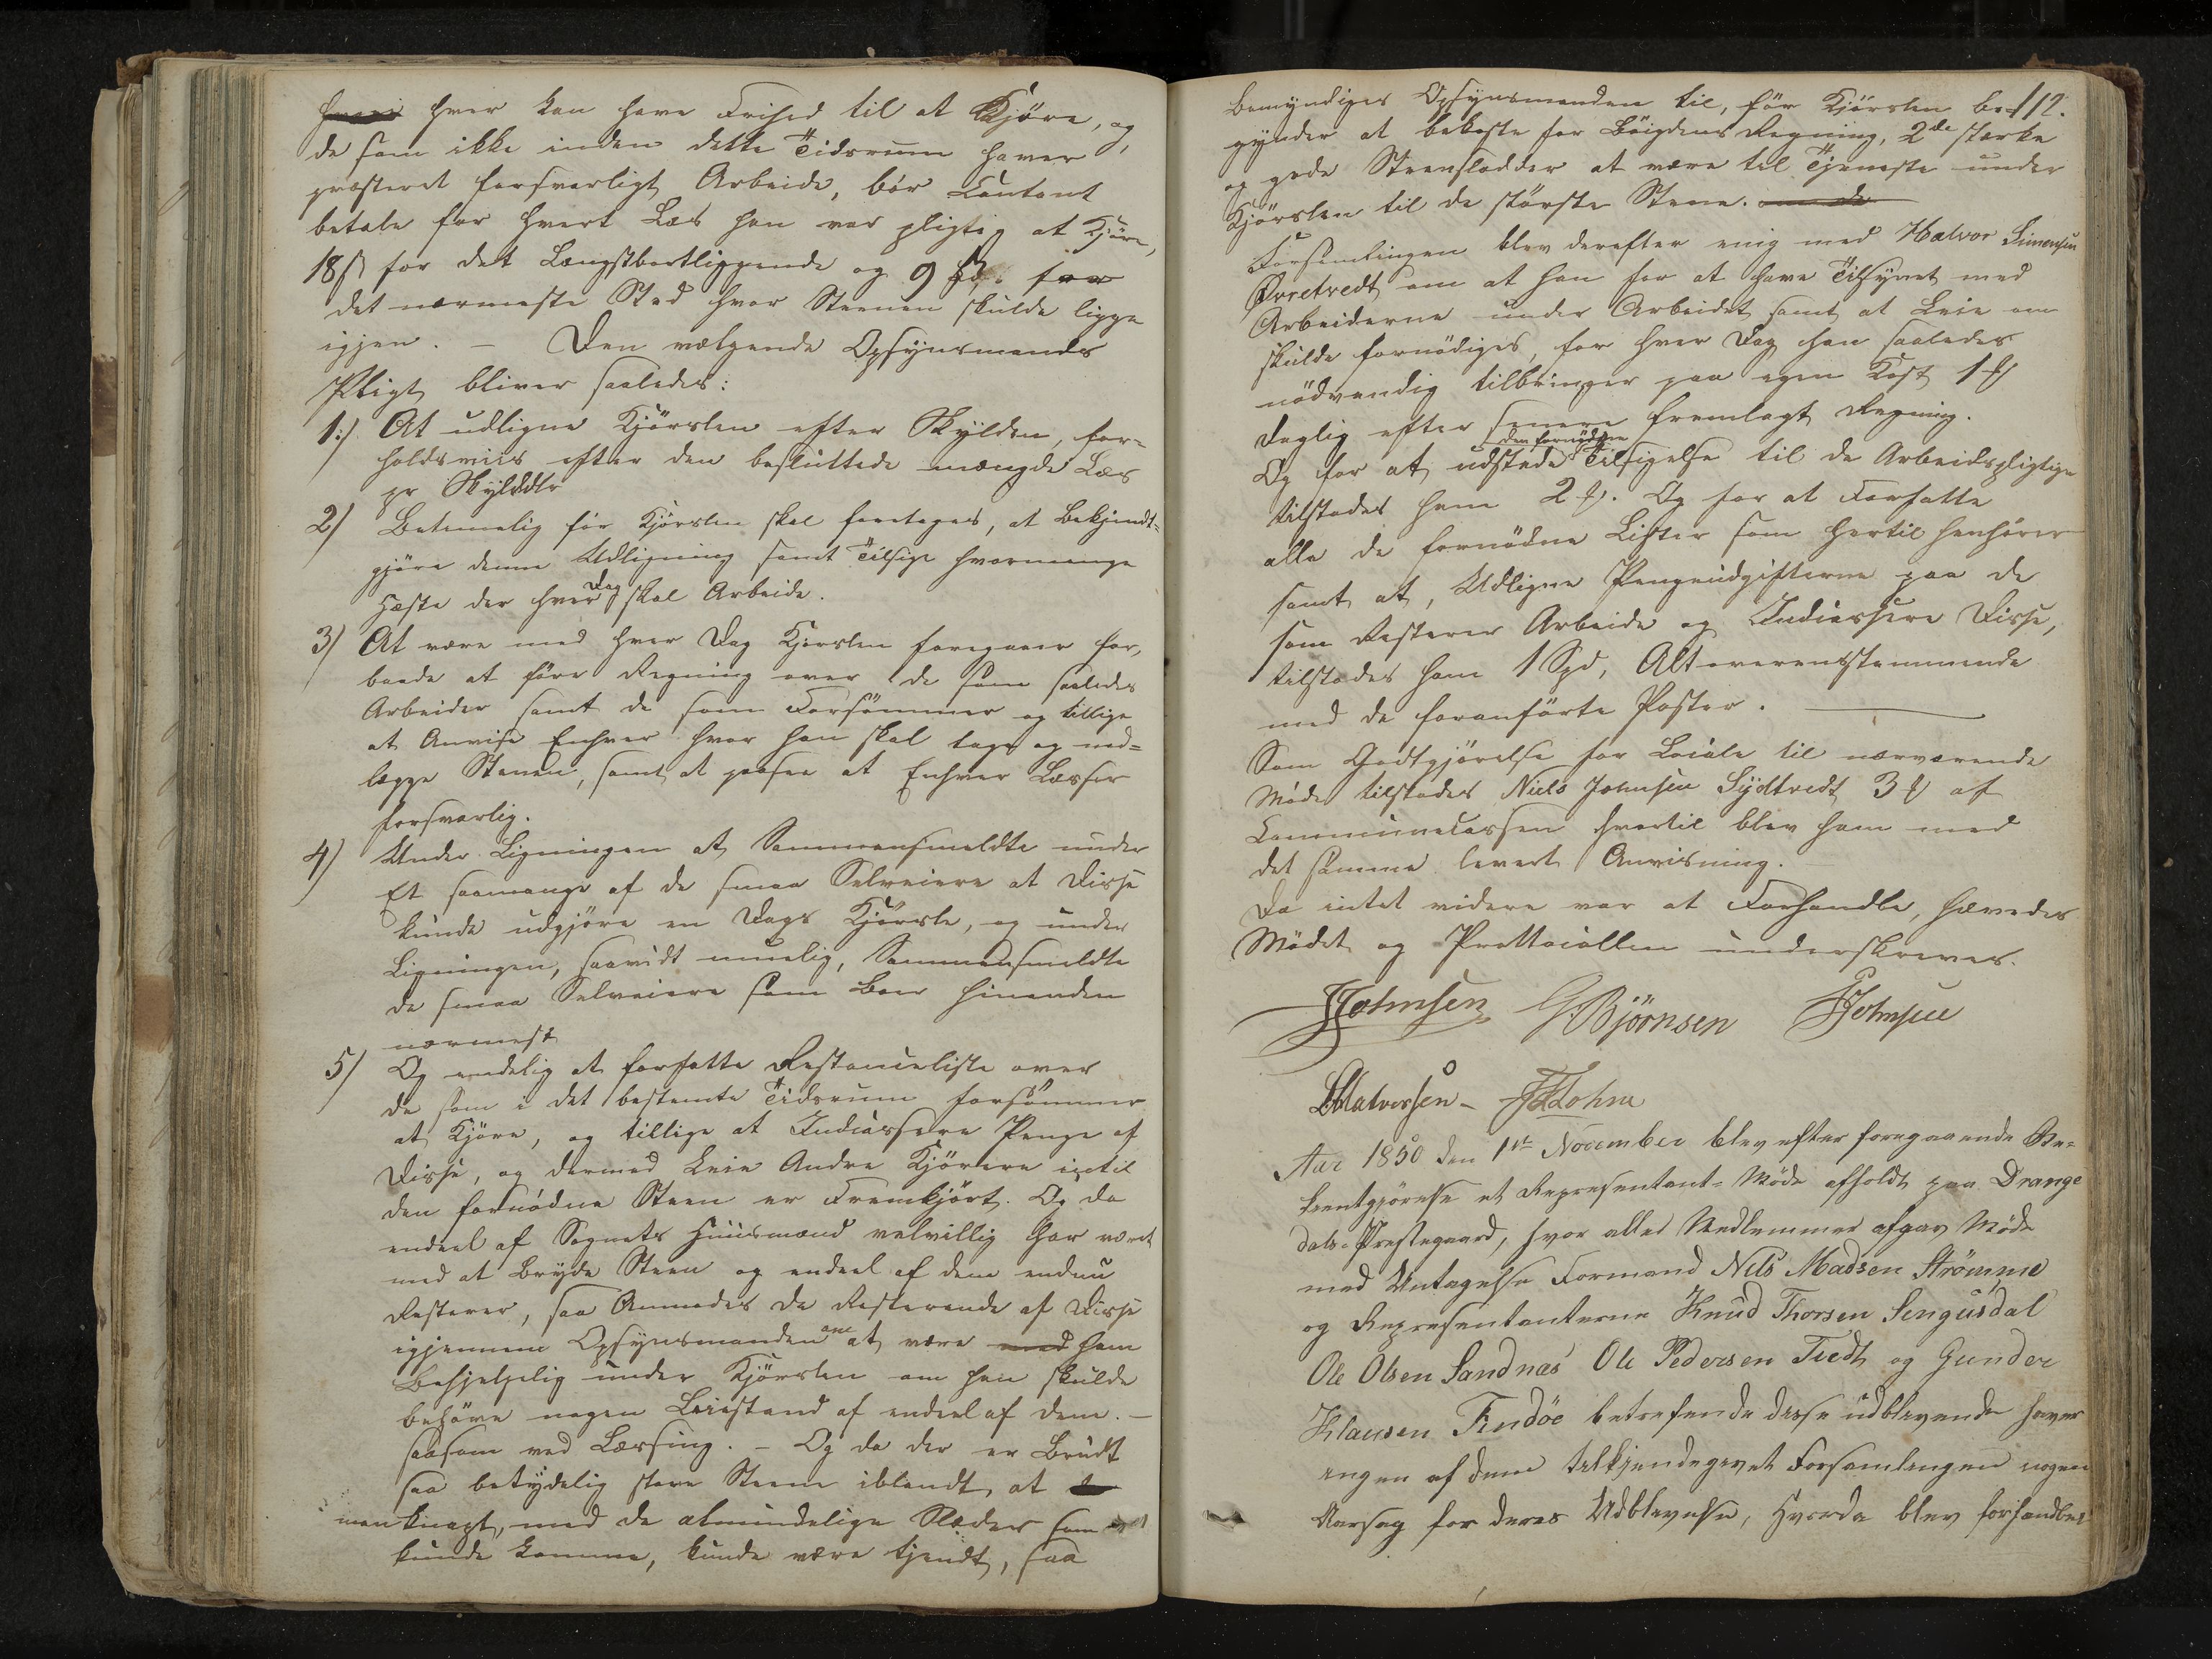 hver kan have Frihed til at Kjöre, og
de som ikke inden dette Tidsrum haver
præsteret forsvarligt Arbeide, bör Contant
betale for hvert Læs han var pligtig at Kjöre,
18 ß for det Længstbortliggende og 9 ß. for
det nærmeste Sted hvor Steenen skulde ligge
igjen. – Den vælgende Opsynsmands
Pligt bliver saaledes:
1:) At udligne Kjörslen efter Skylden, for-
holdsviis efter den besluttede mængde Læs
pr Skylddlr
2) Betimelig för Kjörslen skal foretages, at Bekjendt-
gjöre denne Udligning samt Tilsige hvormange
Hæste der hver Dag skal Arbeide.
3) At være med hver Dag Kjörslen foregaaer for,
baade at före Regning over de som saaledes
Arbeider samt de som Forsömmer og tillige
at Anvise Enhver hvor han skal tage og ned-
lægge Stenen, samt at paasee at Enhver Læsser
forsvarlig.
4) Under Ligningen at Sammensmeldte under
Et saamange af de smaa Selveiere at Disse
kunde udgjöre en Dags Kjörsle, og under
Ligningen, saavidt muelig, Sammensmeldte
de smaa Selveiere som Boer hinanden
nærmest
5) Og endelig at forfatte Restanceliste over
de som i det bestemte Tidsrum forsömmer
at Kjöre, og tillige at Indcassere Penge af
Disse, og dermed Leie Andre Kjörere indtil
den fornödne Steen er Fremkjört. Og da
endeel af Sognets Huusmænd velvillig har været
med at Bryde Steen og endeel af dem endnu
Resterer, saa Anmodes de Resterende af Disse
igjennem Opsynsmanden om at være med ham
behjelpelig under Kjörslen om han skulde
behöve nogen Beistand af endeel af dem. –
saasom ved Læssing. – Og da der er Brudt
saa betydelig store Steene iblandt, at
man knapt, med de almindelige Slæder som
kunde komme, kunde være tjendt, saa
112.
bemyndiges Opsynsmanden til, för Kjörslen be-
gynder at bekoste for Böigdens Regning, 2de stærke
og gode Steenslodder at være til Tjeneste under
Kjörslen til de störste Stene.
Forsamlingen blev derefter enig med Halvor Simonsen
Øvretvedt om at han for at have Tilsynet med
Arbeiderne under Arbeidet samt at Leie om
skulde fornödiges, for hver Dag han saaledes
nödvendig tilbringer paa egen Kost 1
Daglig efter senere fremlagt Regning.
Og for at udstede den fornödne Tilsigelse til de Arbeidspligtige
tilstodes ham 2. Og for at Forfatte
alle de fornödne Lister som hertil henhörer
samt at, Udligne Pengeudgifterne paa de
som Resterer Arbeide og Indcassere Disse,
tilstodes ham 1 Spd, Alt overensstemmende
med de foranförte Poster.
Som Godtgjörelse for Locale til nærværende
Möde tilstodes Niels Johnsen Sydtvedt 3 af
Communecassen hvortil blev ham med
det samme levert Anvisning.
Da intet videre var at Forhandle, hævedes
Mödet og Prottocollen underskreves.
JJohnsen GBjörnsen JJohnsen
Halvorsen –
Aar 1850 den 1st November blev efter foregaaende Be-
kientgjörelse et Representant-Möde afholdt paa Drange
dals-Prestegaard, hvor alle Medlemmer afgav Möde
med Untagelse Formand Nils Madsen Strömme
og Representanterne Knud Thorsen Sengusdal
Ole Olsen Sandnæs Ole Pedersen Tvedt og Gunder
Klausen Findöe betrefende disse udblevende haver
ingen af dem tilkjendegivet Forsamlingen nogen
Aarsag for deres Udblevelse, Hvorda blev forhandlet